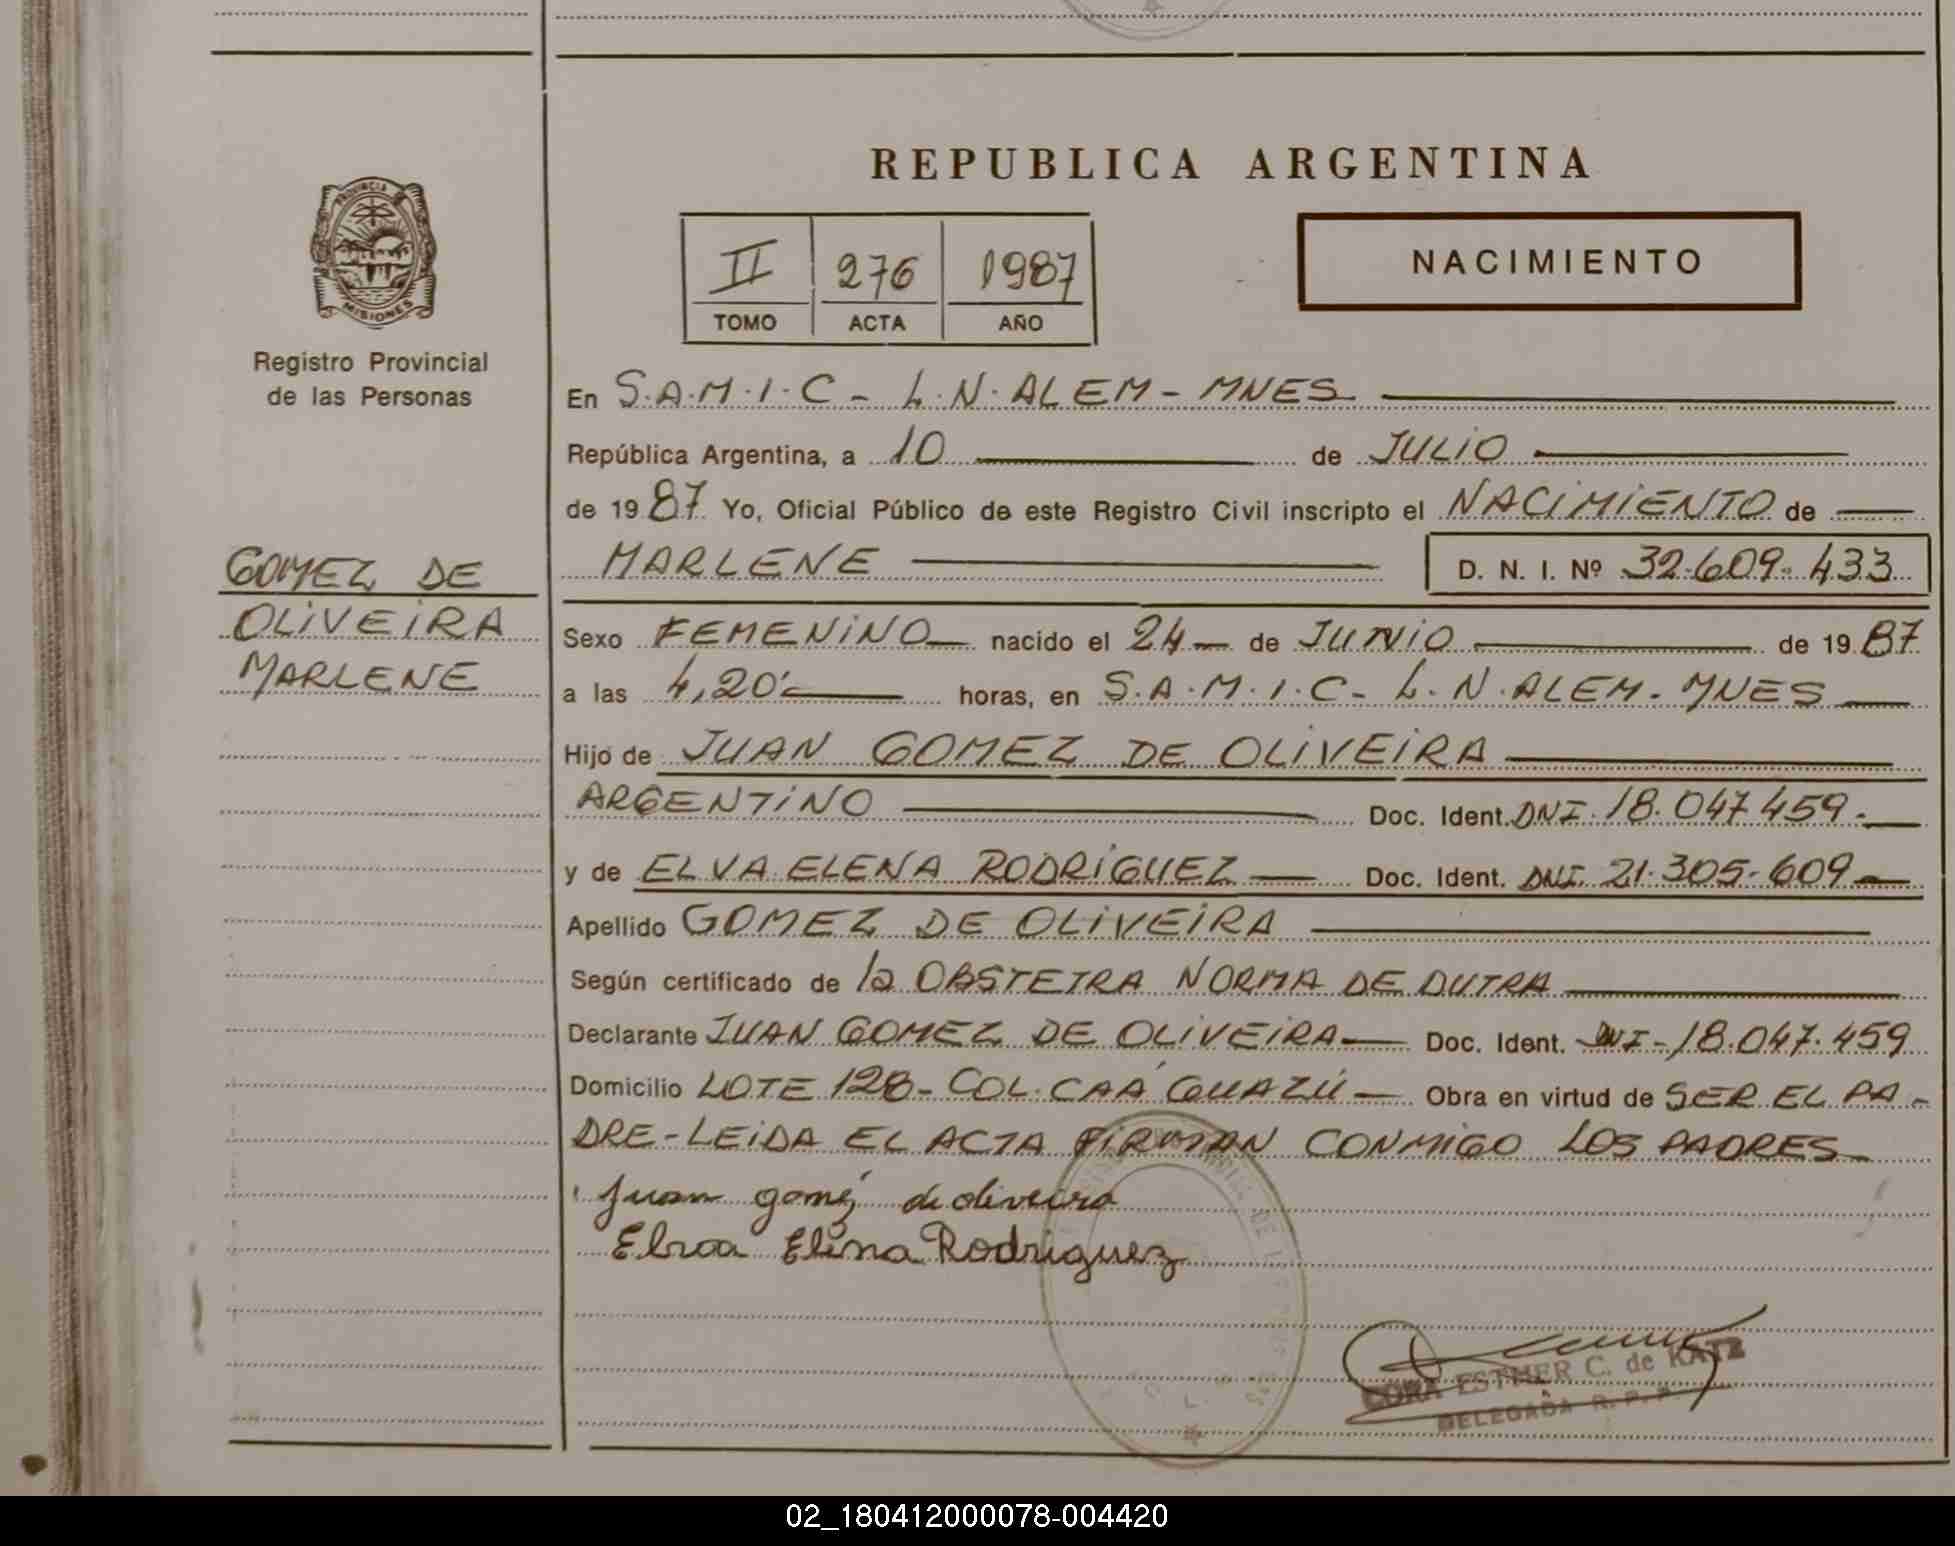 REPUBLICA ARGENTINA
PROVINCIA DE
MISIONES
II 276 1987
TOMO ACTA AÑO
NACIMIENTO
Registro Provincial
de las Personas
GOMEZ DE
OLIVEIRA
MARLENE
En S.A.M.I.C - L.N. ALEM - MNES
República Argentina, a 10 de JULIO
de 1987 Yo, Oficial Público de este Registro Civil inscripto el NACIMIENTO de
MARLENE D. N. I. Nº 32.609.433
Sexo FEMENINO nacido el 24 de JUNIO de 1987
a las 4,20' horas, en S.A.M.I.C - L.N. ALEM - MNES
Hijo de JUAN GOMEZ DE OLIVEIRA
ARGENTINO Doc. Ident. DNI. 18.047.459.
y de ELVA ELENA RODRIGUEZ Doc. Ident. DNI. 21.305.609
Apellido GOMEZ DE OLIVEIRA
Según certificado de la OBSTETRA NORMA DE DUTRA
Declarante JUAN GOMEZ DE OLIVEIRA Doc. Ident. DNI - 18.047.459
Domicilio LOTE 128 - COL. CAÁ GUAZÚ Obra en virtud de SER EL PA-
DRE - LEIDA EL ACTA FIRMAN CONMIGO LOS PADRES
Juan gomez de oliveira
Elva Elena Rodriguez
CORA ESTHER C. de KATZ
DELEGADA R. P. P.
02_180412000078-004420